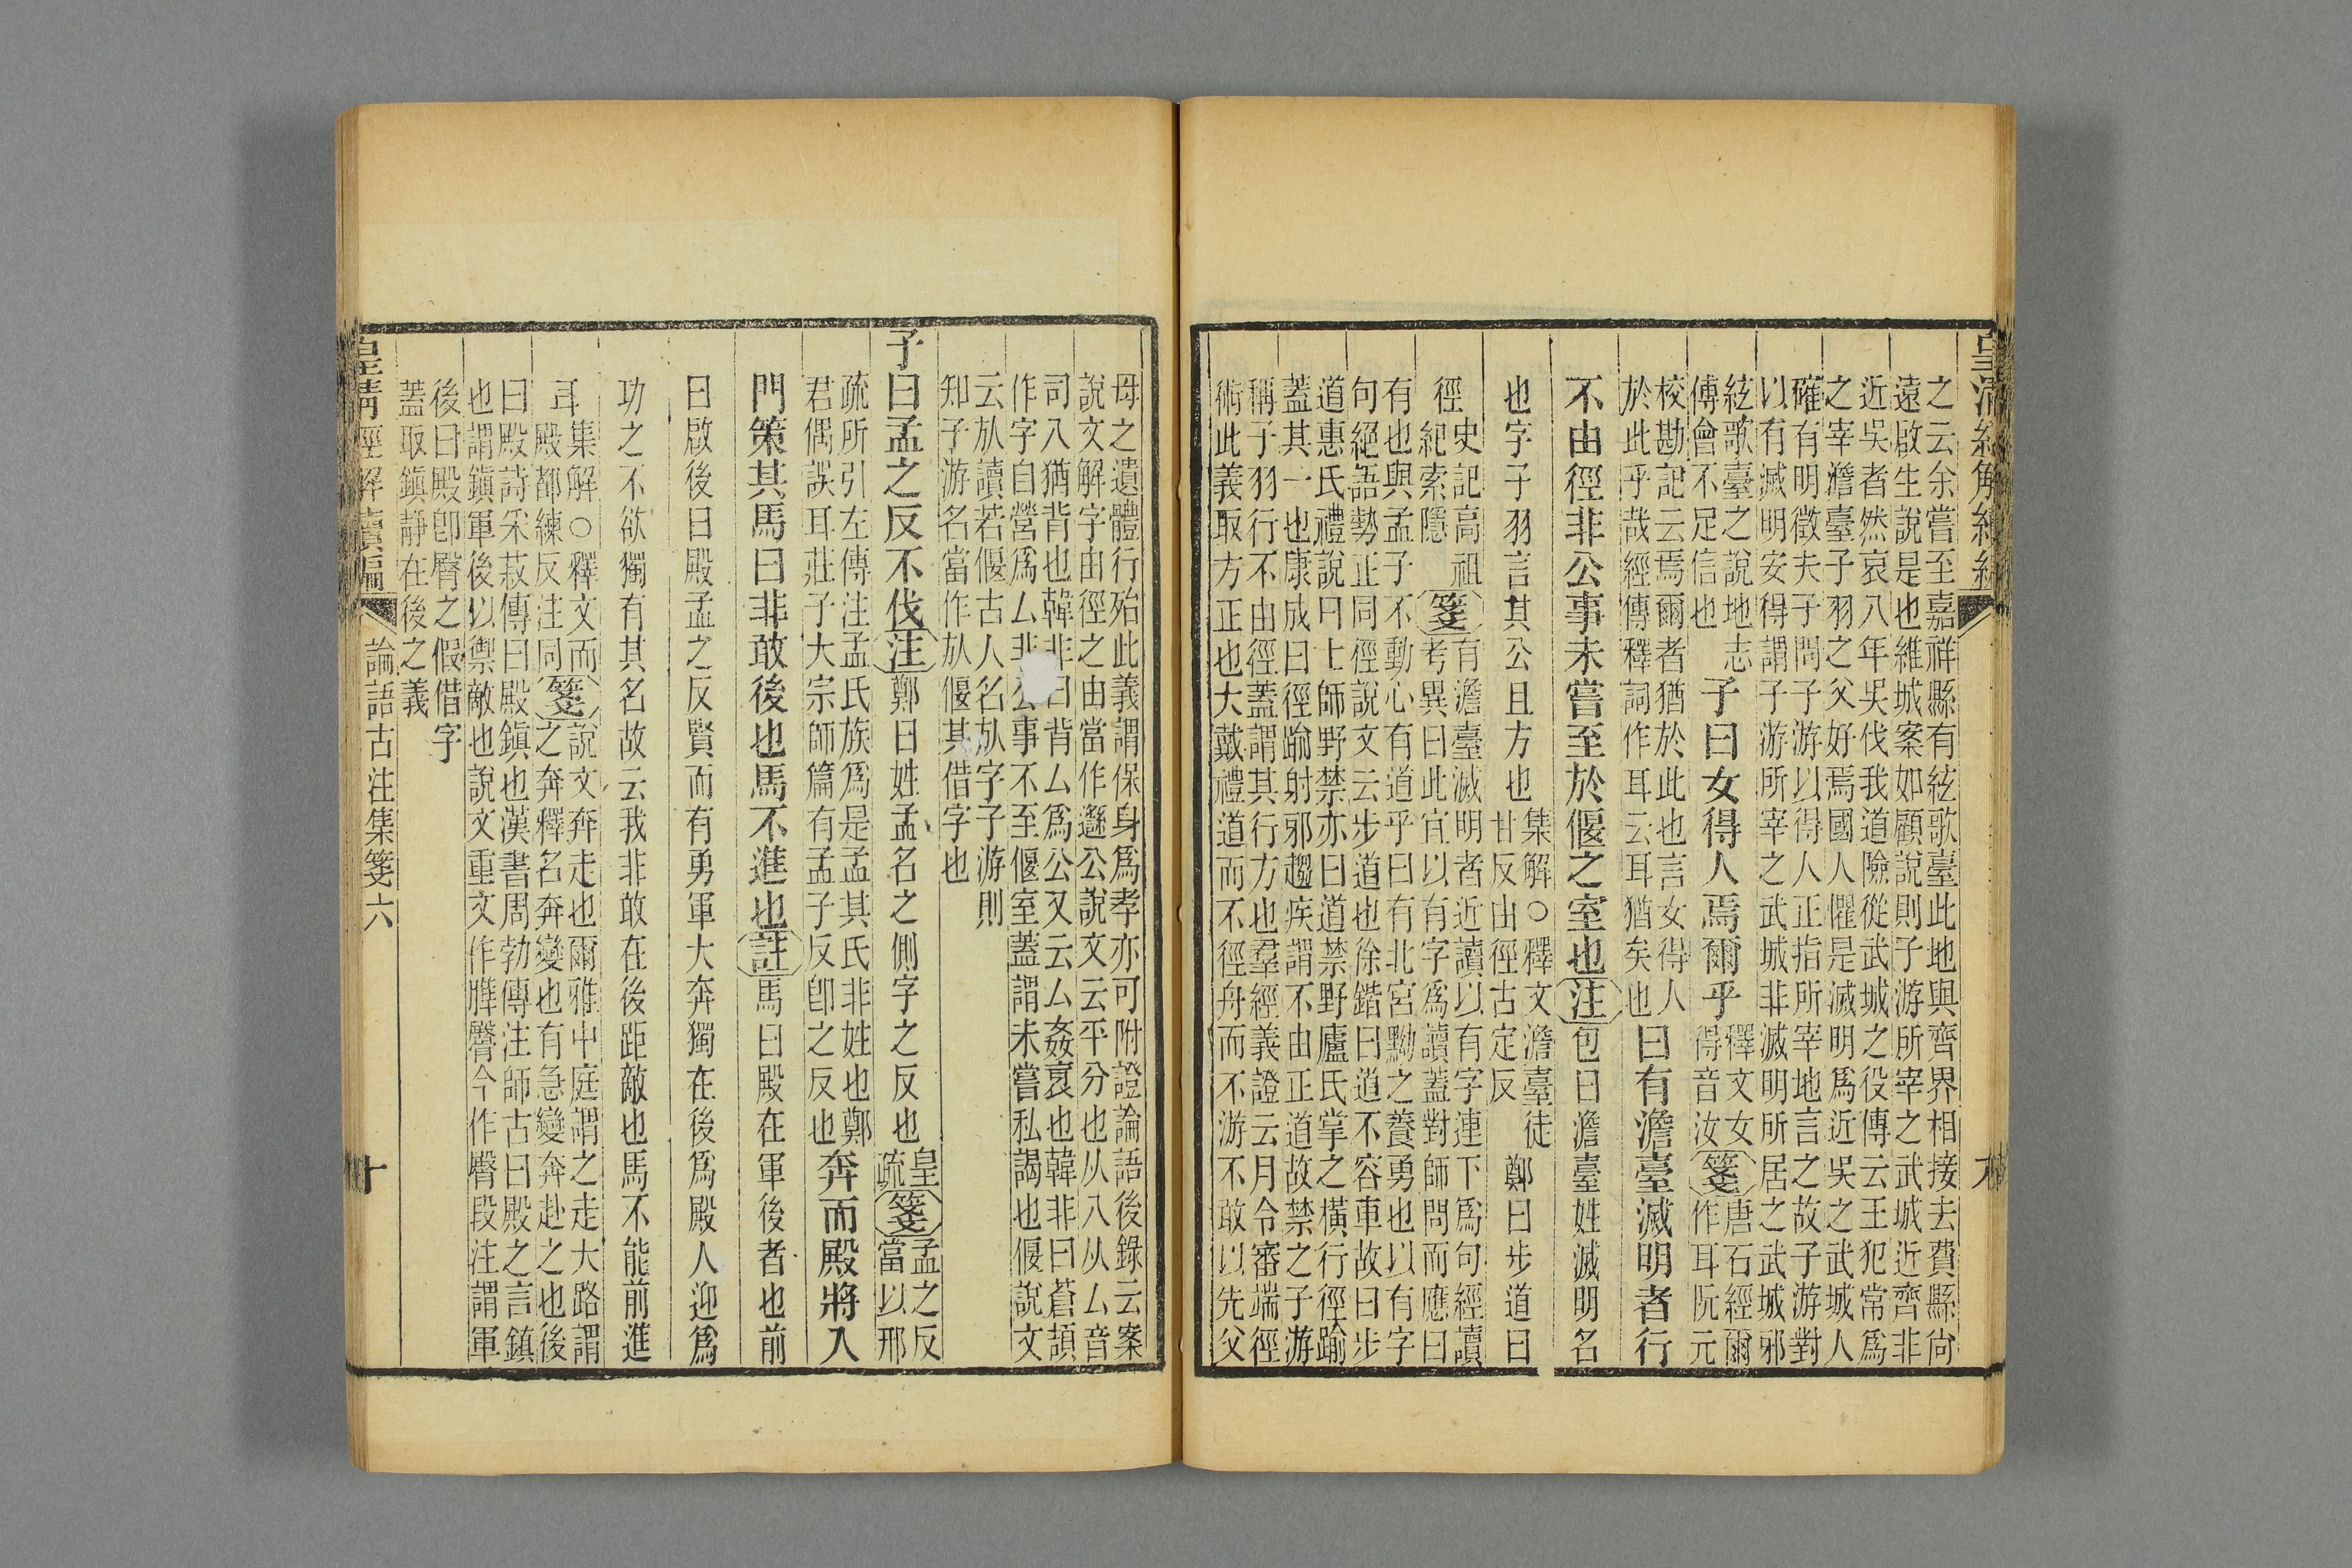 皇清經解續編
九
之云余嘗至嘉祥縣有絃歌臺此地與齊界相接去費縣尙
遠啟生說是也維城案如顧說則子游所宰之武城近齊非
近吳者然哀八年吳伐我道險從武城之役傳云王犯常爲
之宰澹臺子羽之父好焉國人懼是滅明爲近吳之武城人
確有明徵夫子問子游以得人正指所宰地言之故子游對
以有滅明安得謂子游所宰之武城非滅明所居之武城邪
絃歌臺之說地志
傅會不足信也
子曰女得人焉爾乎
釋文女
得音汝
箋
唐石經爾
作耳阮元
校勘記云焉爾者猶於此也言女得人
於此乎哉經傳釋詞作耳云耳猶矣也
曰有澹臺滅明者行
不由徑非公事未嘗至於偃之室也注包曰澹臺姓滅明名
也字子羽言其公且方也
集解○釋文澹臺徒
甘反由徑古定反
鄭曰步道曰
徑
史記高祖
紀索隱
箋
有澹臺滅明者近讀以有字連下爲句經讀
考異曰此宜以有字爲讀蓋對師問而應曰
有也與孟子不動心有道乎曰有北宮黝之養勇也以有字
句絕語勢正同徑說文云步道也徐鍇曰道不容車故曰步
道惠氏禮說曰士師野禁亦曰道禁野廬氏掌之橫行徑踰
蓋其一也康成曰徑踰射邪趨疾謂不由正道故禁之子游
稱子羽行不由徑蓋謂其行方也羣經義證云月令審端徑
術此義取方正也大戴禮道而不徑舟而不游不敢以先父
母之遺體行殆此義謂保身爲孝亦可附證論語後錄云案
說文解字由徑之由當作邎公說文云平分也从八从厶音
司八猶背也韓非曰背厶爲公又云厶姦衺也韓非曰蒼頡
作字自營爲厶非公事不至偃室蓋謂未嘗私謁也偃說文
云㫃讀若偃古人名㫃字子游則
知子游名當作㫃偃其借字也
子曰孟之反不伐注鄭曰姓孟名之側字之反也
皇
疏
箋
孟之反
當以邢
疏所引左傳注孟氏族爲是孟其氏非姓也鄭
君偶誤耳莊子大宗師篇有孟子反卽之反也
奔而殿將入
門策其馬曰非敢後也馬不進也註馬曰殿在軍後者也前
曰啟後曰殿孟之反賢而有勇軍大奔獨在後爲殿人迎爲
功之不欲獨有其名故云我非敢在後距敵也馬不能前進
耳
集解○釋文而
殿都練反注同
箋
說文奔走也爾雅中庭謂之走大路謂
之奔釋名奔變也有急變奔赴之也後
曰殿詩采菽傳曰殿鎮也漢書周勃傳注師古曰殿之言鎮
也謂鎮軍後以禦敵也說文重文作脽臀今作臀段注謂軍
後曰殿卽臀之假借字
蓋取鎮靜在後之義
皇清經解續編
論語古注集箋六
十